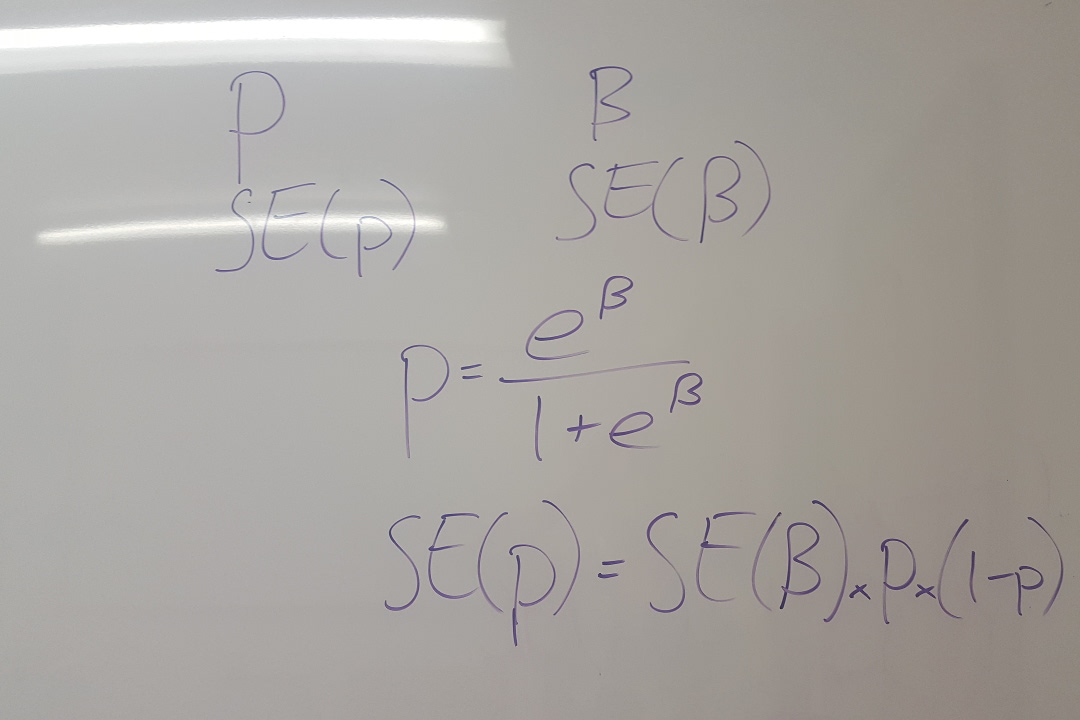 p β
SE(p) SE(β)
p = e^β / 1+e^β
SE(p) = SE(β) × p × (1-p)